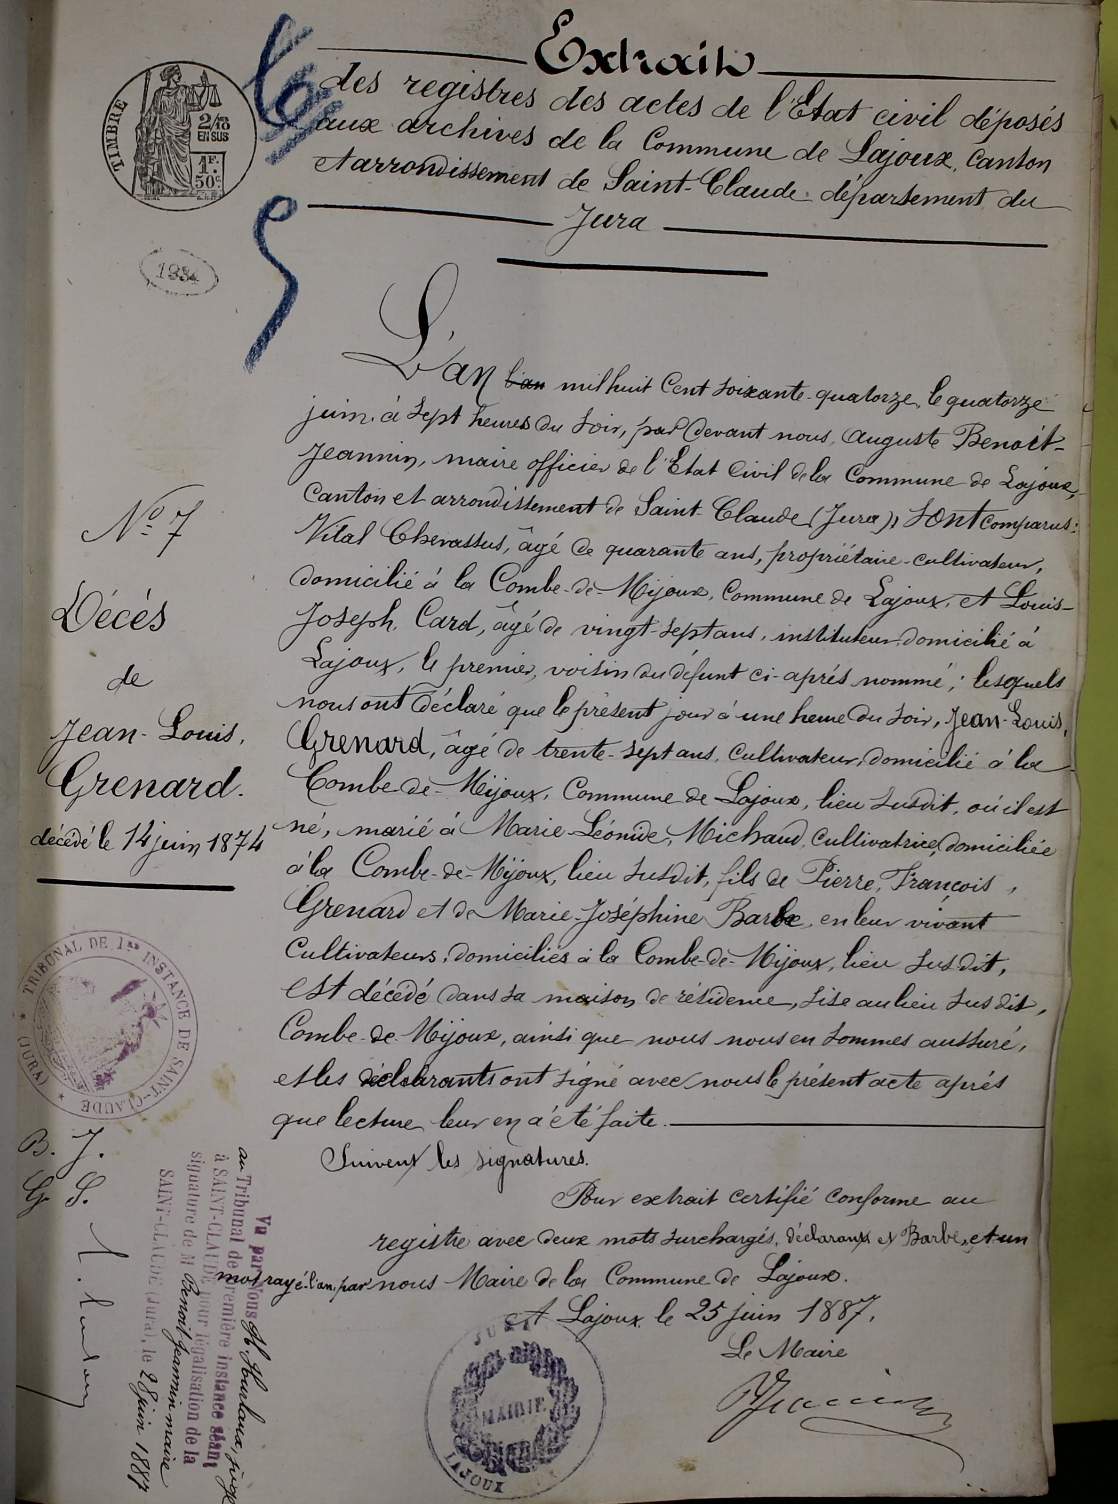 Extrait
des registres des actes de l'Etat civil déposés
aux archives de la Commune de Lajoux, canton
et arrondissement de Saint-Claude département du
Jura
TIMBRE
2/10
EN SUS
1F.
50c.
L'an l'an mil huit cent soixante-quatorze, le quatorze
juin, à sept heures du soir, par devant nous, Auguste Benoit-
Jeannin, maire officier de l'Etat Civil de la Commune de Lajoux,
canton et arrondissement de Saint-Claude (Jura), sont comparus:
Vital Chevassus, âgé de quarante ans, propriétaire-cultivateur,
domicilié à la Combe-de-Mijoux, Commune de Lajoux, et Louis-
Joseph, Card, âgé de vingt-sept ans, instituteur, domicilié à
Lajoux, le premier, voisin du défunt ci-après nommé; lesquels
nous ont déclaré que le présent jour à une heure du soir, Jean-Louis,
Grenard, âgé de trente-sept ans, cultivateur, domicilié à la
Combe-de-Mijoux, Commune de Lajoux, lieu susdit, où il est
né, marié à Marie-Léonide, Michaud, cultivatrice, domiciliée
à la Combe-de-Mijoux, lieu susdit, fils de Pierre, François,
Grenard et de Marie-Joséphine Barbe, en leur vivant
cultivateurs, domiciliés à la Combe-de-Mijoux, lieu susdit,
est décédé dans sa maison de résidence, sise au lieu susdit,
Combe-de-Mijoux, ainsi que nous nous en sommes aussuré,
et les déclarants ont signé avec nous le présent acte après
que lecture leur en a été faite.
Suivent les signatures.
Pour extrait certifié conforme au
registre avec deux mots surchargés, déclarants et Barbe, et un
mot rayé l'an, par nous Maire de la Commune de Lajoux.
A Lajoux, le 25 juin 1887.
Le Maire
N° 7
Décès
de
Jean-Louis,
Grenard.
décédé le 14 juin 1874
TRIBUNAL DE 1re INSTANCE DE SAINT-CLAUDE
(JURA)
B. J.
G S.
Vu par Nous
au Tribunal de première instance séant
à SAINT-CLAUDE pour légalisation de la
signature de M Benoit Jeannin maire
SAINT-CLAUDE (Jura), le 28 juin 1887
JURA
MAIRIE
LAJOUX